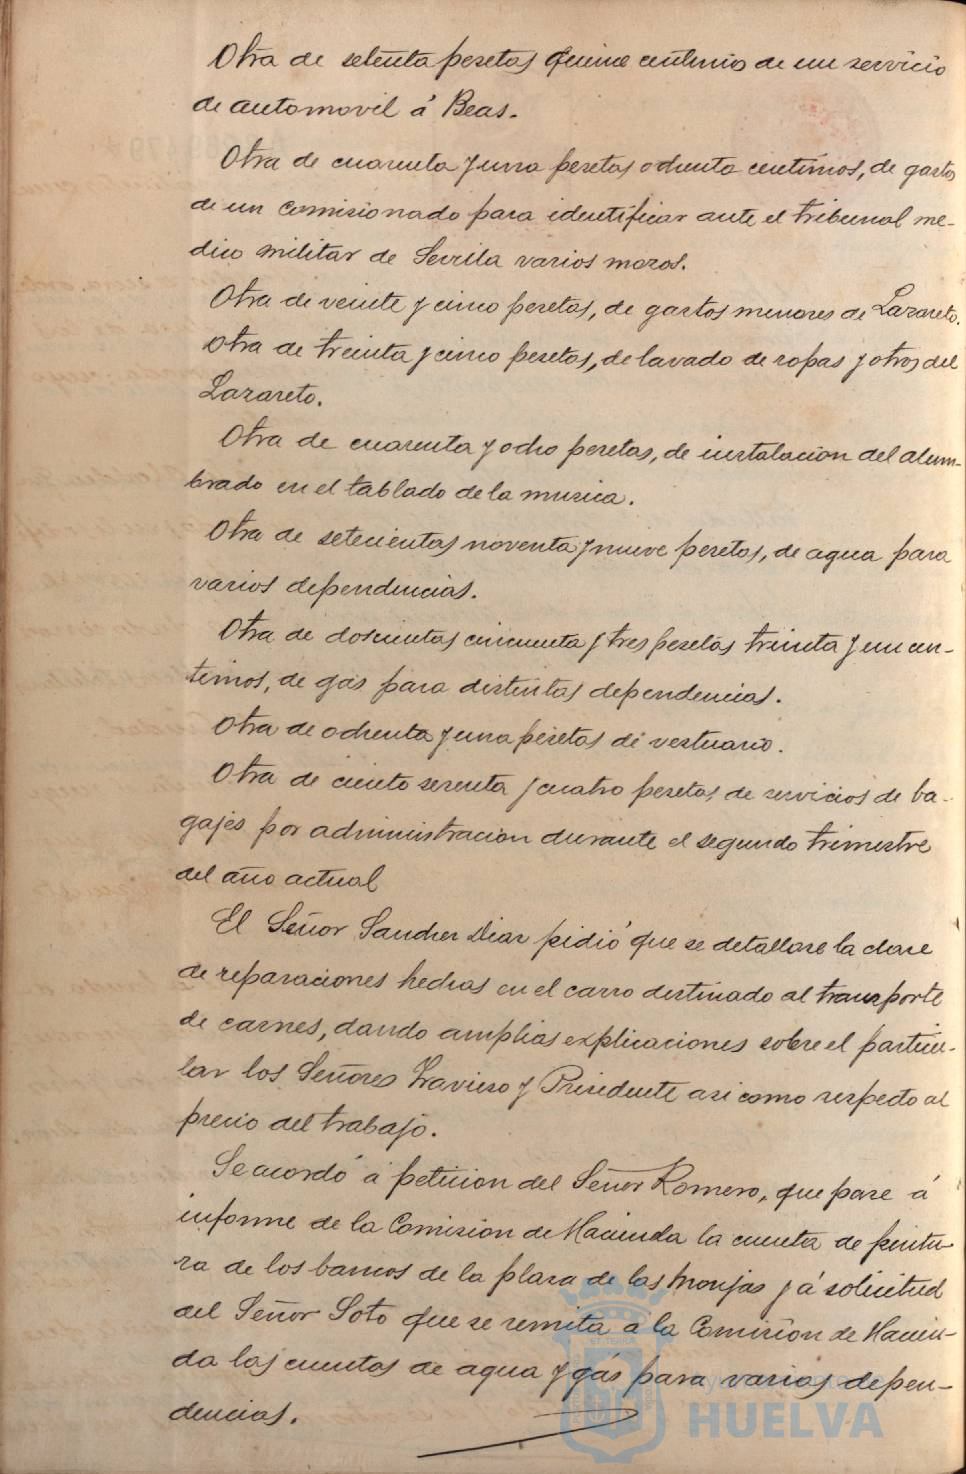 Otra de setenta pesetas quince centimos de un servicio
de automovil á Beas.
Otra de cuarenta y una pesetas ochenta centimos, de gastos
de un comisionado para identificar ante el tribunal me-
dico militar de Sevilla varios mozos.
Otra de veinte y cinco pesetas, de gastos menores de Lazareto.
Otra de treinta y cinco pesetas, de lavado de ropas y otros del
Lazareto.
Otra de cuarenta y ocho pesetas, de instalacion del alum-
brado en el tablado de la musica.
Otra de setecientas noventa y nueve pesetas, de agua para
varios dependencias.
Otra de doscientas cincuenta y tres pesetas treinta y un cen-
timos, de gas para distintas dependencias.
Otra de ochenta y una pesetas de vestuario.
Otra de ciento sesenta y cuatro pesetas, de servicios de ba-
gajes por administracion durante el segundo trimestre
del año actual
El Señor Sanchez Diaz pidió que se detallase la clase
de reparaciones hechas en el carro destinado al transporte
de carnes, dando amplias explicaciones sobre el particu-
lar los Señores Travieso y Presidente asi como respecto al
precio del trabajo.
Se acordó á peticion del Señor Romero, que pase á
informe de la Comision de Hacienda la cuenta de pintu-
ra de los bancos de la plaza de las Monjas y á solicitud
del Señor Soto que se remita á la Comision de Hacien-
da las cuentas de agua y gás para varias depen-
dencias.
HUELVA